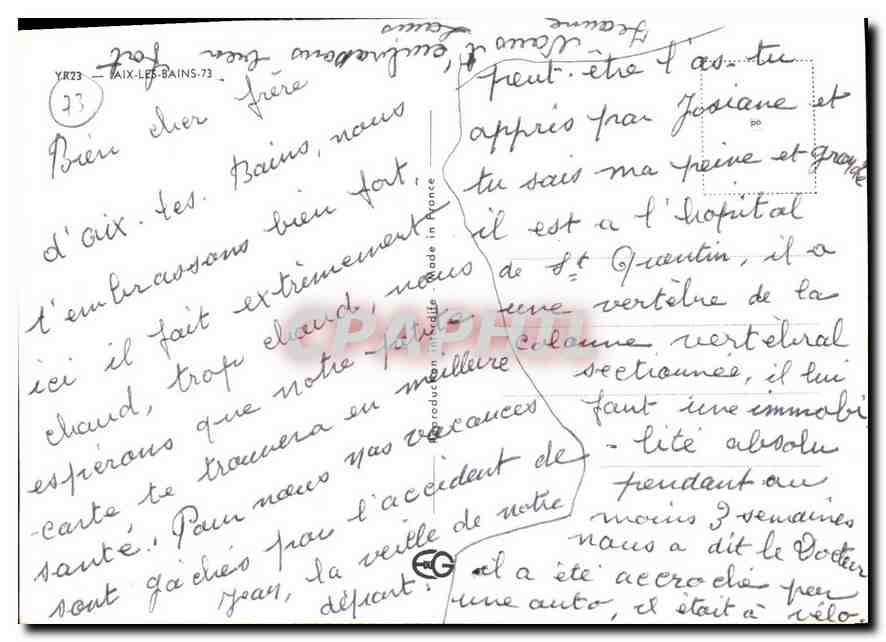 YR23 — AIX-LES-BAINS-73
73
Bien cher frère
d'aix. les. Bains, nous
t'embrassons bien fort,
ici il fait extrèmement
chaud, trop chaud, nous
espérons que notre petite
-carte te trouvera en meilleure
santé. Pour nous nos vacances
sont gâchés par l'accident de
Jean, la veille de notre
départ.
peut-être l'as-tu
appris par Josiane et
tu sais ma peine et grande
il est a l'hopital
de St Quentin, il a
une vertèbre de la
colonne vertèbral
sectionnée, il lui
faut une immobi
-lité absolu
pendant au
moins 3 semaines
nous a dit le Docteur
il a été accroché par
une auto, il était à vélo.
Nous t'embrassons bien fort
Jeanne Louis
Reproduction interdite - Made in France
CPAPHIL